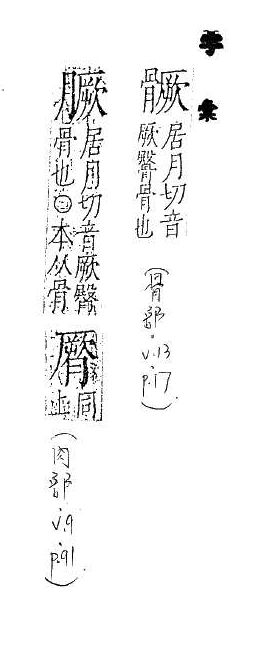 字彙
䯵
居月切音
厥臀骨也
(骨部.v.13
p.17)
䐘
居月切音厥臀
骨也○本从骨
𦠒
同
上
(肉部
v.9
p.91)